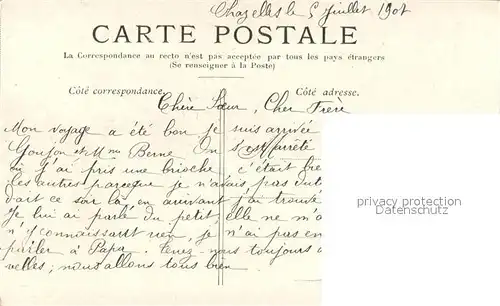 Chazelles le 5 Juillet 190
CARTE POSTALE
La Correspondance au recto n'est pas acceptée par tous les pays étrangers
(Se renseigner à la Poste)
Côté correspondance.
Côté adresse.
Chère Sœur, Cher Frère
Mon voyage a été bon je suis arrivée
Goujon et Mme Berne On s'est
où j'ai pris une brioche c'était
les autres parceque je n'avais pas
d'art ce soir là, en arrivant j'ai trouvé
Je lui ai parlé du petit, elle ne m'a
n'y connaissant rien, je n'ai pas en
parler à Papa. Tenez-nous toujours
velles; nous allons tous bien
privacy protection
Datenschutz